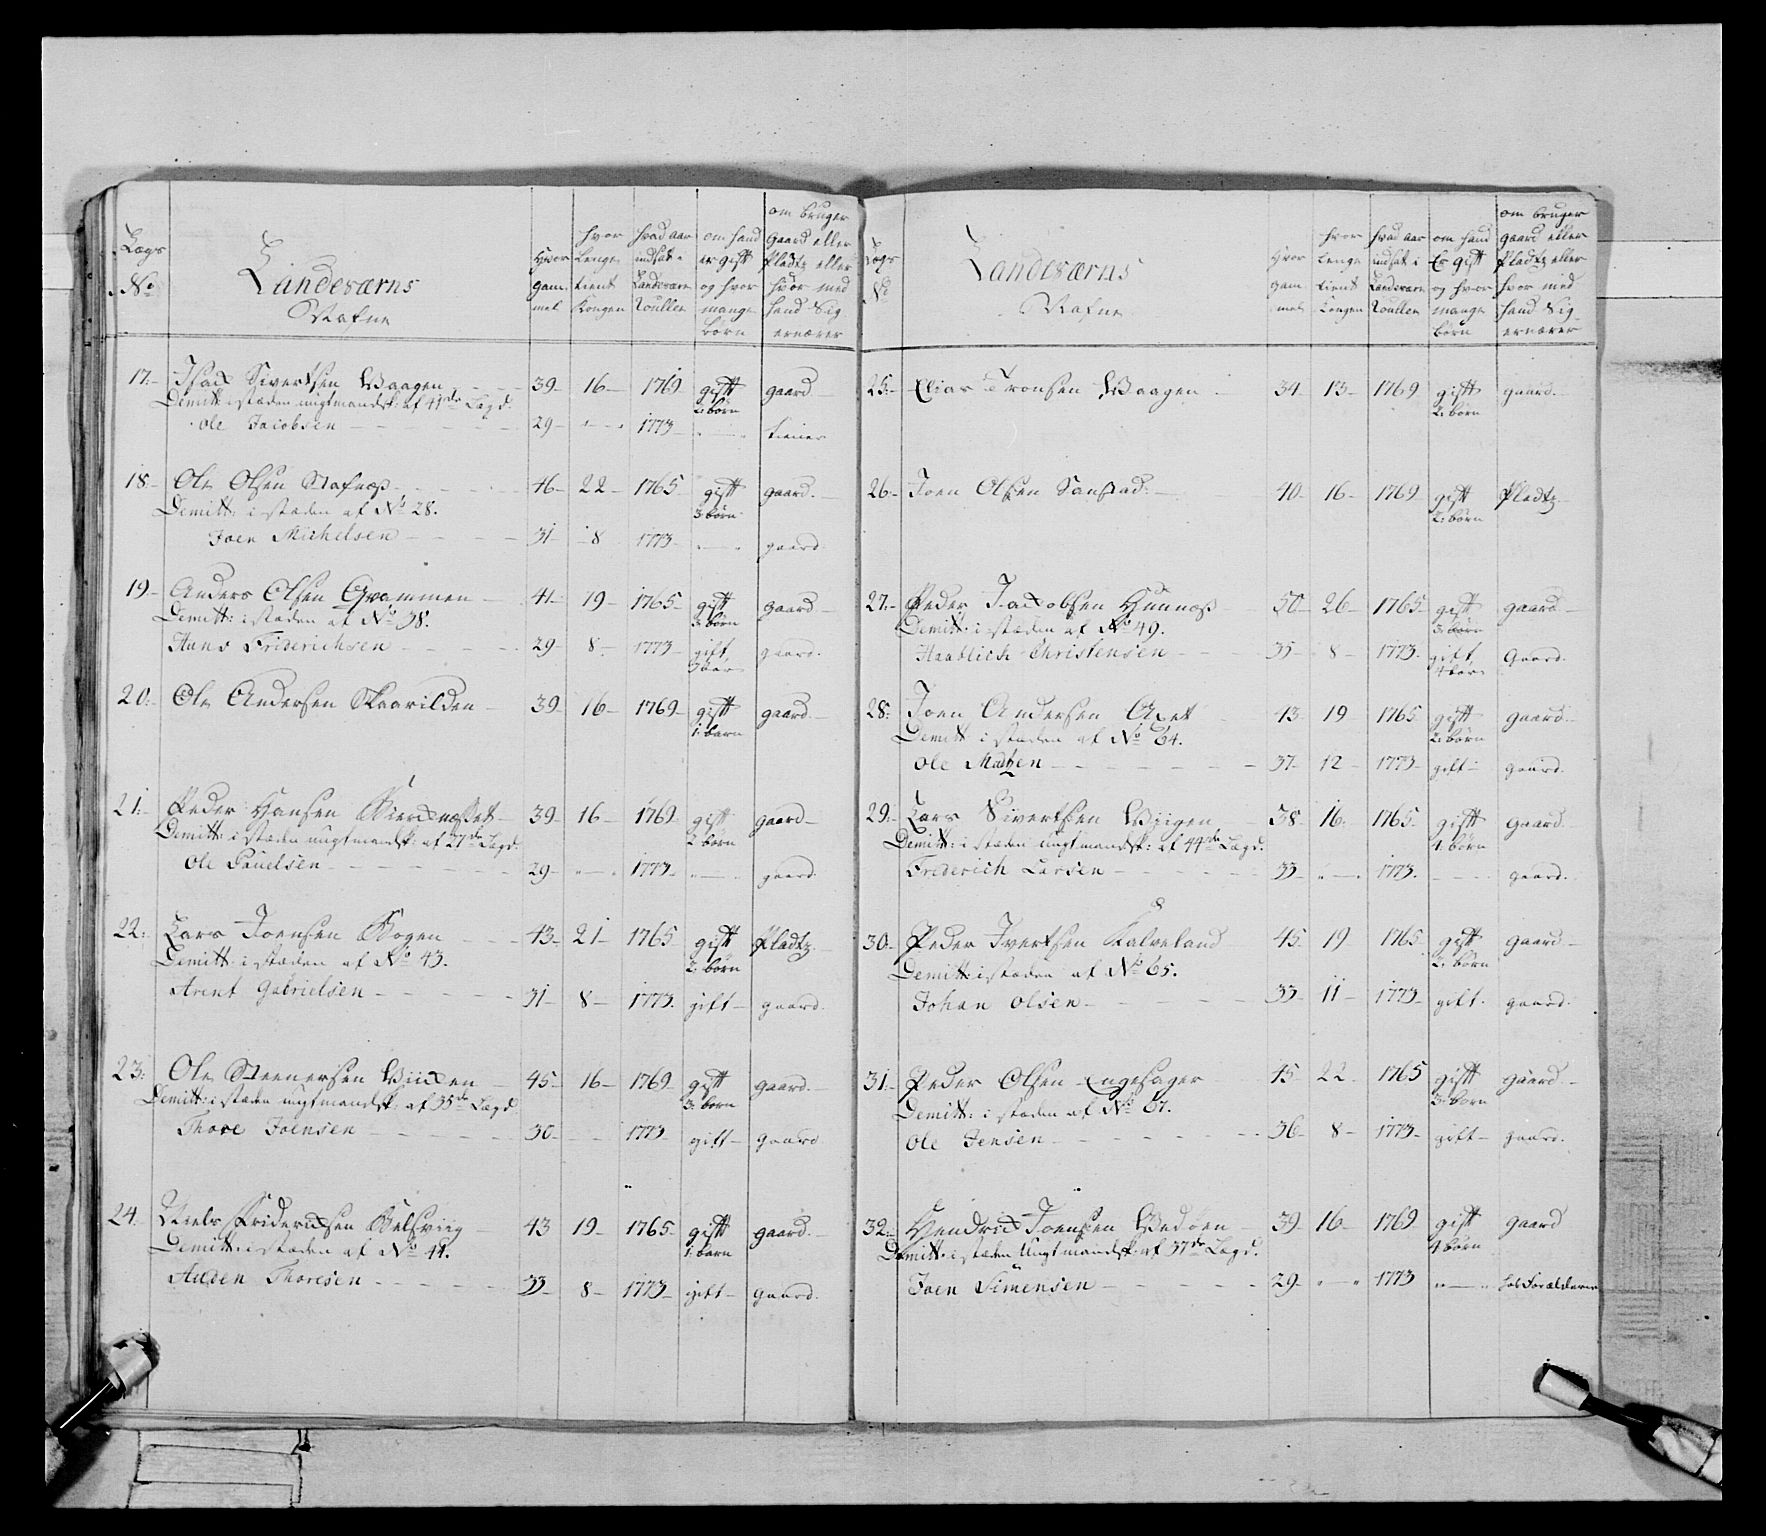 Lægs No
Landeværns Nafne
Hvor gammel
hvor Lenge tient Kongen
hvad aar indsat i Landeværn Roullen
om hand er gift og hvor mange børn
om bruger gaard eller Pladtz eller hvor med hand Sig ernærer
17:- Isach Sivertsen Waagen - 39- 16- 1769 gift 2: børn gaard
Demitt: i stæden ungtmandsk: af 41de Lægd.
Ole Jacobsen - 29- 1773- tiener
18:- Ole Olsen Stafnæs - 46- 22- 1765 gift 3: børn gaard.-
Demitt: i stæden af No 28.
Joen Michelsen - 31- 8 1773- gaard
19- Anders Olsen Grammen - 41- 19- 1765- gift 3: børn gaard-
Demitt: i stæden af No 38.
Hans Friderichsen - 29- 8- 1773- gift 3 børn gaard.
20:- Ole Andersen Skarvilden - 39- 16- 1769- gift 1: barn gaard.-
21:- Peder Hansen - 39- 16- 1769 gift 2: børn gaard-
Demitt: i stæden ungtmandsk: af 27de Lægd.
Ole Poulsen - 29- 1773- gaard.
22:- Lars Joensen Bogen - 43- 21- 1765 gift 2: børn Pladtz.
Demitt: i stæden af No 43.
Arent Gabrielsen - 31- 8- 1773. gift- gaard.
23:- Ole Steenersen Viichen - 45- 16- 1769- gift 3: børn gaard.-
Demitt: i stæden ungtmandsk: af 35de Lægd
Thore Joensen - 30- 1773- gift- gaard
24:- Niels Friderichsen - 43 19- 1765- gift 1: barn gaard.-
Demitt: i stæden af No 44.
Auden Thoresen - 33- 8- 1773- gift- gaard.
Lægs No
Landeværns Nafne
Hvor gammel
hvor Lenge tient Kongen
hvad aar indsat i Landeværn Roullen
om hand Er gift og hvor mange børn
om bruger gaard eller Pladtz eller hvor med hand Sig ernærer
25:- Elias Tronsen Waagen - 34- 13- 1769 gift 2: børn gaard.-
26:- Joen Olsen Sanstad:- 40- 16- 1769- gift 2: børn Pladtz
27:- Peder Jacobsen Hunnæs - 50- 26- 1765 gift 3: børn gaard-
Demitt: i stæden af No 49.
Christensen - 35- 8- 1773. gift 4 børn Gaard.
28:- Joen Andersen Axet - 43- 19 1765 gift 2: børn gaard.-
Demitt: i stæden af No 64.
Ole Madtzen - 37- 12- 1773- gift- gaard.
29:- Lars Sivertsen Wiigen - 38- 16. 1765- gift 4: børn gaard.
Demitt: i stæden ungtmandsk: af 44de Lægd.
Friderich Larsen - 33- 1773. gaard.
30:- Peder Ivertsen Kalveland 45- 19- 1765- gift 2: børn gaard-
Demitt: i stæden af No 65.
Johan Olsen - 33- 11- 1773- gift. gaard.
31:- Peder Olsen Engesager 45- 22- 1765 gift 3: børn gaard-
Demitt: i stæden af No 67.
Ole Jensen - 36- 8- 1773- gift- gaard.
32:- Hendrich Joensen Wedøen - 39- 16- 1769- gift 4 børn gaard
Demitt: i stæden Ungtmandsk: af 37de Lægd.
Joen Simensen - 29- 1773 hos Forældrene